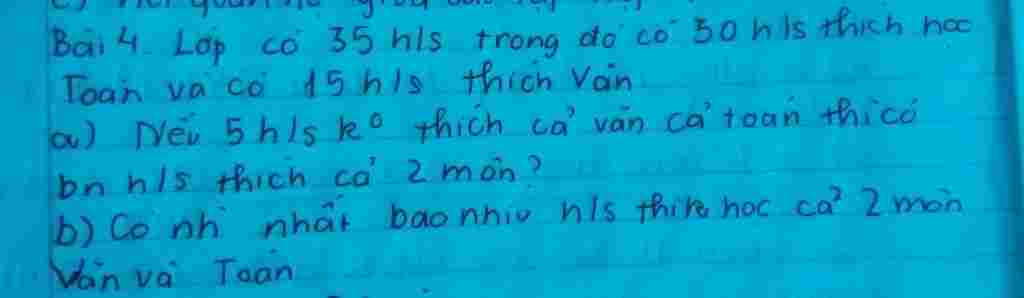 Bài 4. Lớp có 35 h/s trong đó có 30 h/s thích học
Toán và có 15 h/s thích Văn
a) Nếu 5 h/s k° thích cả văn cả toán thì có
bn h/s thích cả 2 môn?
b) Có nh nhất bao nhiu h/s thik học cả 2 môn
Văn và Toán